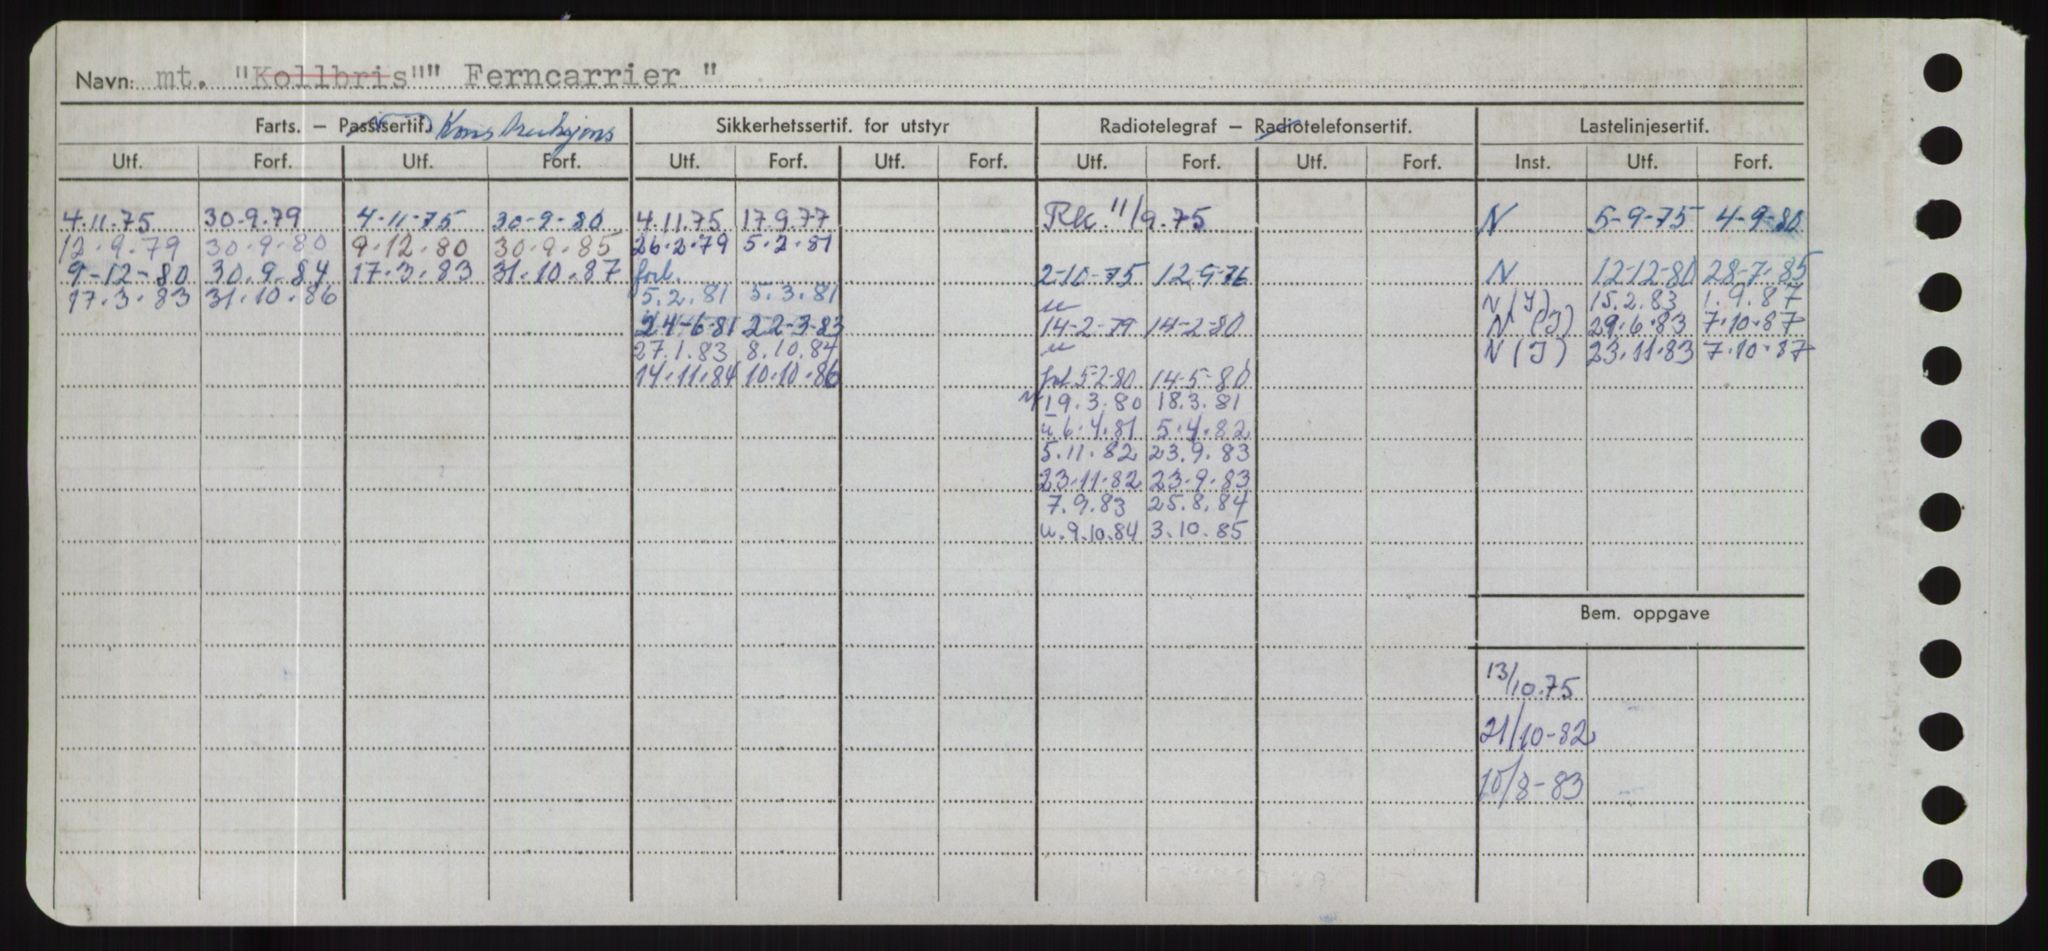 Navn: mt. "Kollbris"" Ferncarrier "
Farts. — Passisertif. Konstruksjons Sikkerhetssertif. for utstyr Radiotelegraf — Radiotelefonsertif. Lastelinjesertif.
Utf. Forf. Utf. Forf. Utf. Forf. Utf. Forf. Utf. Forf. Utf. Forf. Inst. Utf. Forf.
4.11.75 30-9.79 4-11-75 30-9-80 4.11.75 17.9.77 Rk. 11/9.75 N 5-9-75 4-9-80
12.9.79 30.9.80 9.12.80 30.9.85 26.2.79 5.2.81
9-12-80 30.9.84 17.3.83 31.10.87 forl. 2-10-75 12-9-76 N 12-12-80 28-7-85
17.3.83 31.10.86 5.2.81 5.3.81 u N(J) 15.2.83 1.9.87
24-6-81 22-3-83 14-2-79 14-2-80 N(J) 29.6.83 7.10.87
27.1.83 8.10.84 u N(J) 23.11.83 7.10.87
14.11.84 10.10.86 forl 5-2-80 14-5-80
19.3.80 18.3.81
u 6.4.81 5.4.82
5.11.82 23.9.83
23.11.82 23.9.83
7.9.83 25.8.84
u.9.10.84 3.10.85
Bem. oppgave
13/10.75
21/10-82
10/8-83